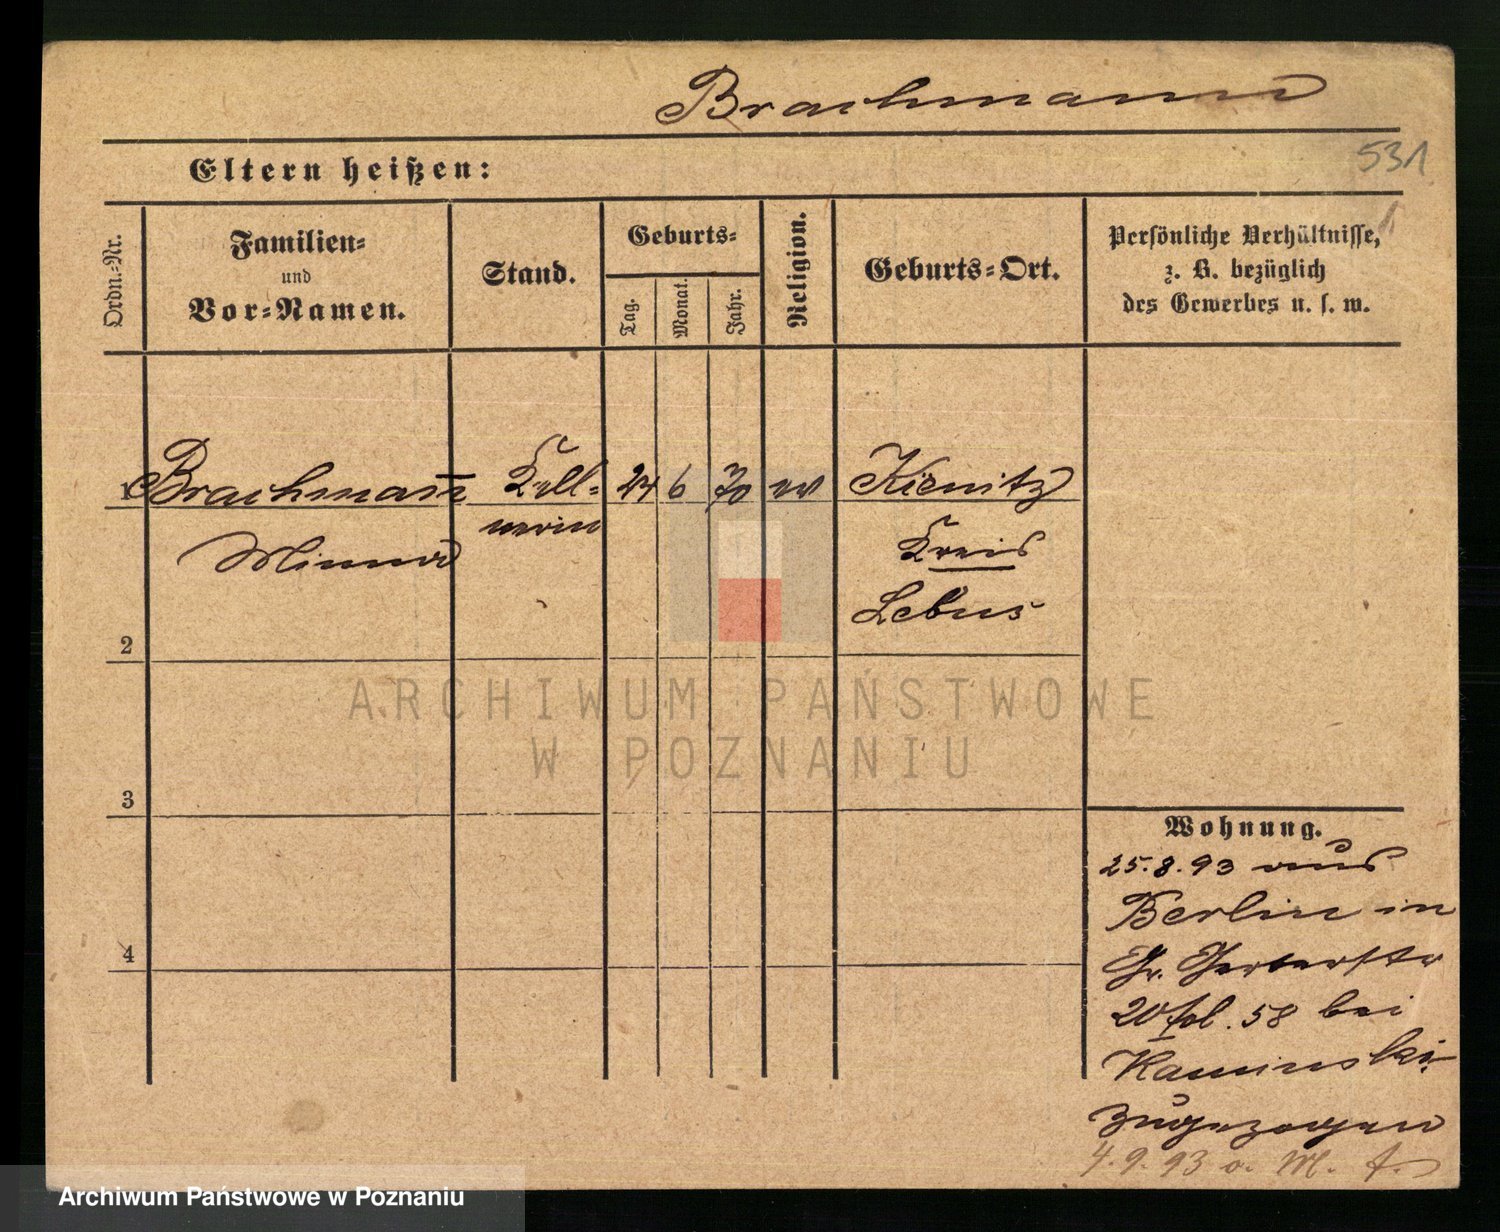 Brachmann
531
Eltern heißen:
Ordn.-Nr.
Familien-
und
Vor-Namen.
Stand.
Geburts-
Tag.
Monat.
Jahr.
Religion.
Geburts-Ort.
Persönliche Verhältnisse,
z. B. bezüglich
des Gewerbes u. s. w.
1 Brachman̅ Kell- 24 6 70 ev Kienitz
nerin
Minna
Kreis
Lebus
2
3
4
ARCHIWUM PAŃSTWOWE
W POZNANIU
Wohnung.
25.8.93 aus
Berlin in
Gr. Gerberstr
20 fol. 58 bei
Kaminski
zugezogen
4.9.93 o. M.
Archiwum Państwowe w Poznaniu